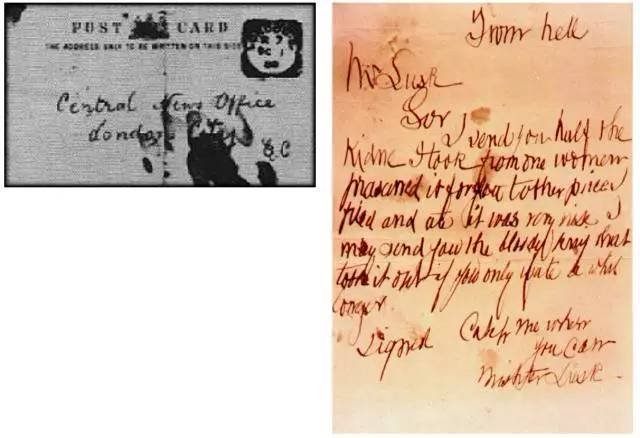 POST CARD
THE ADDRESS ONLY TO BE WRITTEN ON THIS SIDE
OC 1
88
Central News Office
London City
E.C
From hell
Mr Lusk
Sor
I send you half the
Kidne I took from one women
prasarved it for you tother piece I
fried and ate it was very nise I
may send you the bloody knif that
took it out if you only wate a whil
longer.
signed Catch me when
you Can
Mishter Lusk.